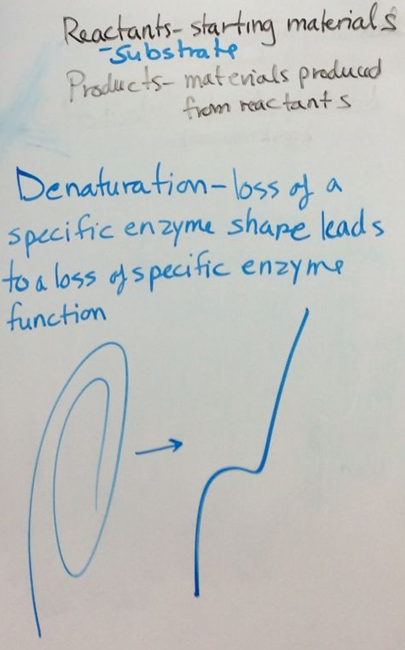 Reactants- starting materials
-Substrate
Products- materials produced
from reactants
Denaturation-loss of a
specific enzyme shape leads
to a loss of specific enzyme
function